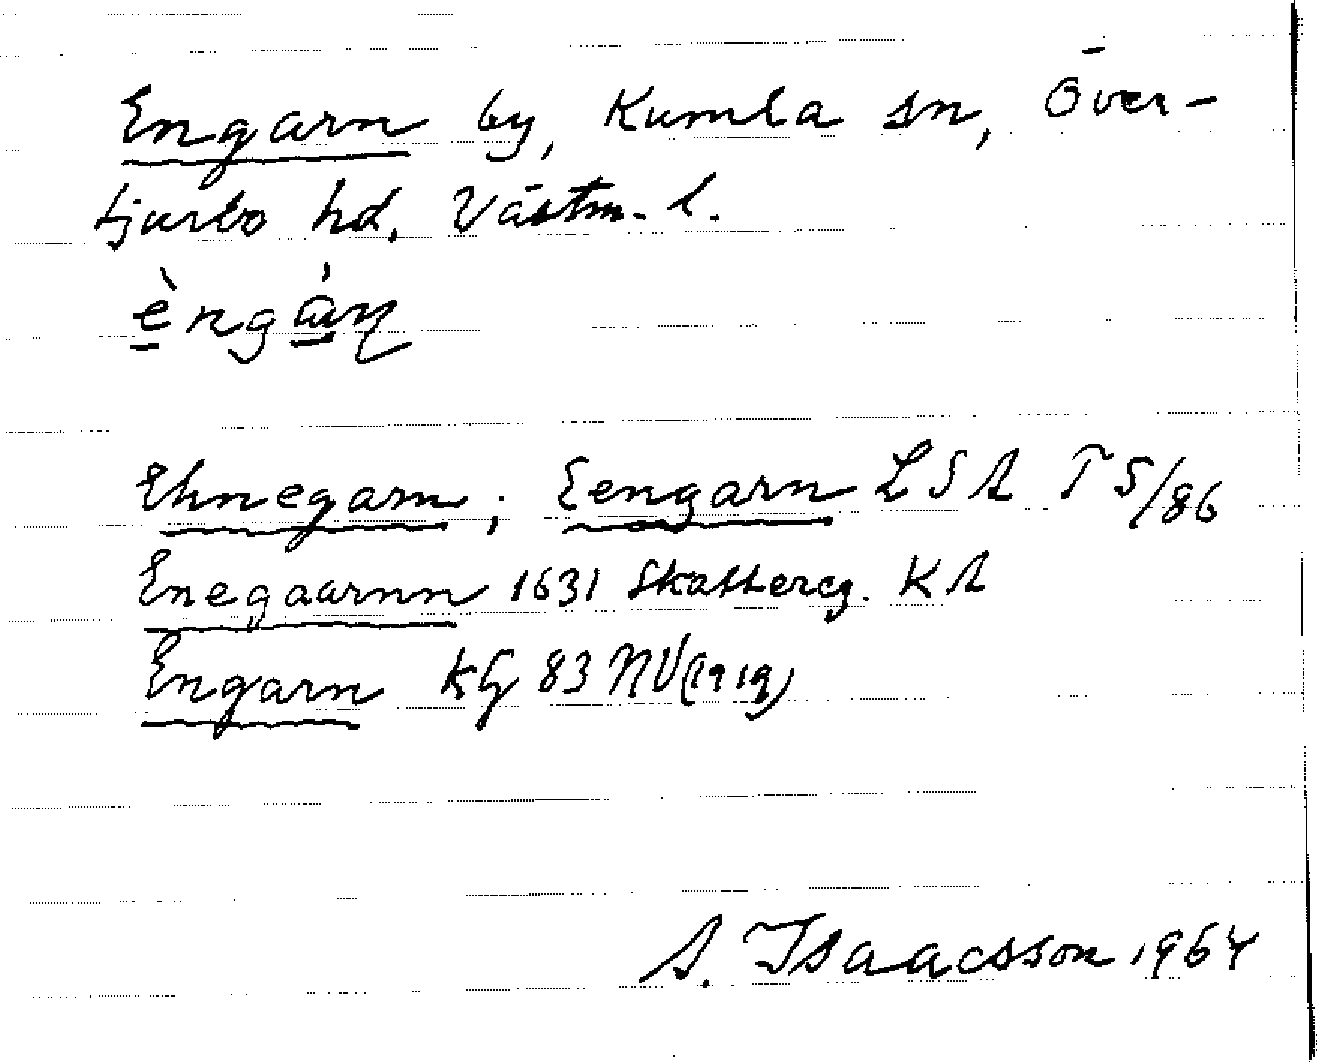 Engarn by, Kumla sn, Över-
tjurbo hd. Västm. l.
èngàɳ
Ehnegarn; Eengarn LSA T5/86
Enegaarnn 1631 Skattereg. KA
Engarn kG 83 NV(1919)
A. Isaacsson 1964